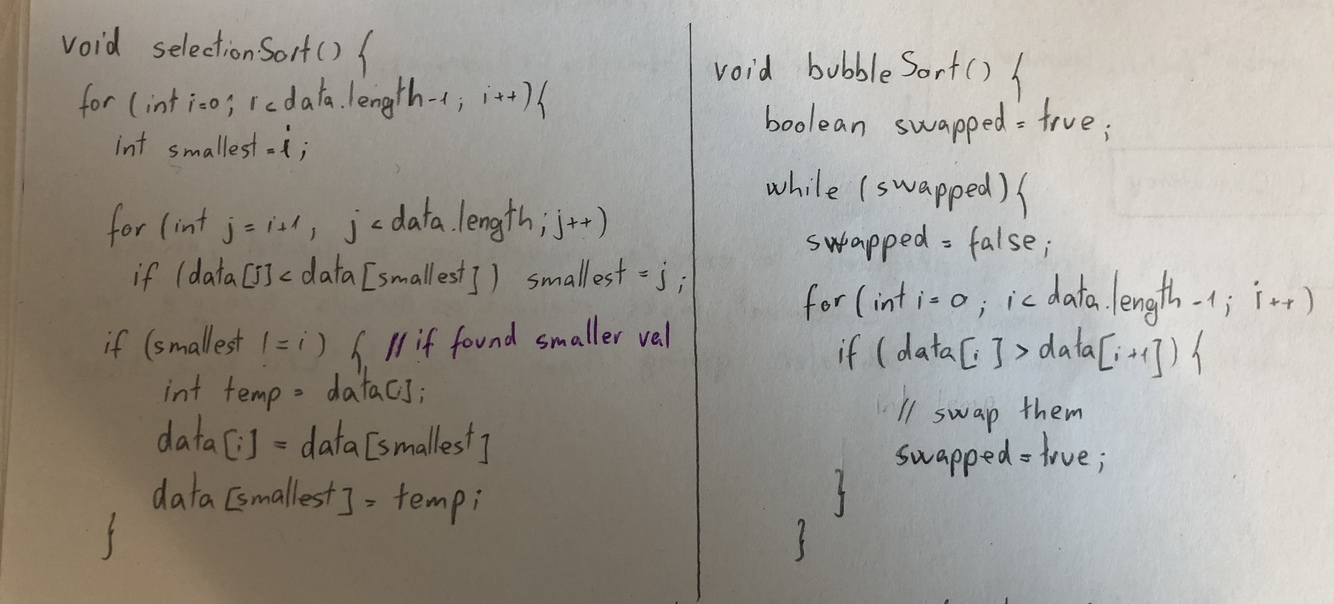 void selectionSort() {
for (int i=0; i<data.length-1; i++){
int smallest = i;
for (int j = i+1, j < data.length; j++)
if (data[j] < data[smallest]) smallest = j;
if (smallest != i) { // if found smaller val
int temp = data[i];
data[i] = data[smallest]
data[smallest] = temp;
}
void bubbleSort() {
boolean swapped = true;
while (swapped) {
swapped = false;
for (int i = 0; i < data.length -1; i++)
if (data[i] > data[i+1]) {
// swap them
swapped = true;
}
}